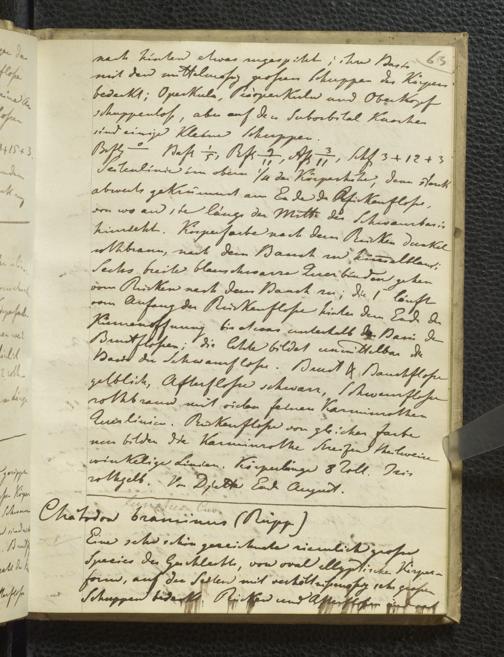 63
nach hinten etwas zugespitzt; ihre Basis
mit den mittelmässig grossen Schuppen des Körpers
bedeckt; Operkula, Präoperkula und Oberkopf
schuppenlos, aber auf den Suborbital Knochen
sind einige kleine Schuppen.
Bstfl Bafl 1/5, Rfl 9/11, Afl 3/11, Schfl 3+12+3
Seitenlinie im obern 1/4 der Körperhöhe, dann stark
abwerts gekrümmt am Ende der Rückenflosse,
von wo aus sie längs der Mitte der Schwanzbasis
hinzieht. Körperfarbe nach dem Rücken dunkel
rothbraun, nach dem Bauch zu himmelblau,
Sechs breite blauschwarze Querbinden gehen
vom Rücken nach dem Bauch zu; die 1 läuft
vom Anfang der Rückenflosse hinter dem Ende der
Kiemenöffnung bis etwas unterhalb der Basis der
Brustflossen; die letzte bildet unmittelbar die
Basis der Schwanzflosse. Brust & Bauchflosse
gelblich, Afterflosse schwarz, Schwanzflosse
rothbraun mit vielen feinen Karminrothen
Querlinien. Rückenflosse von gleicher Farbe
nur bilden die Karminrothe Streifen theilweise
winkelige Linien. Körperlänge 8 Zoll. Iris
rothgelb. Von Djetta Ende August.
Chätodon (Rüpp.)
Eine sehr schön gezeichnete ziemlich grosse
Species des Geschlechts, von oval elliptischer Körper-
form, auf den Seiten mit verhältnissmässig sehr grossen
Schuppen bedeckt. Rücken und Afterflosse sind